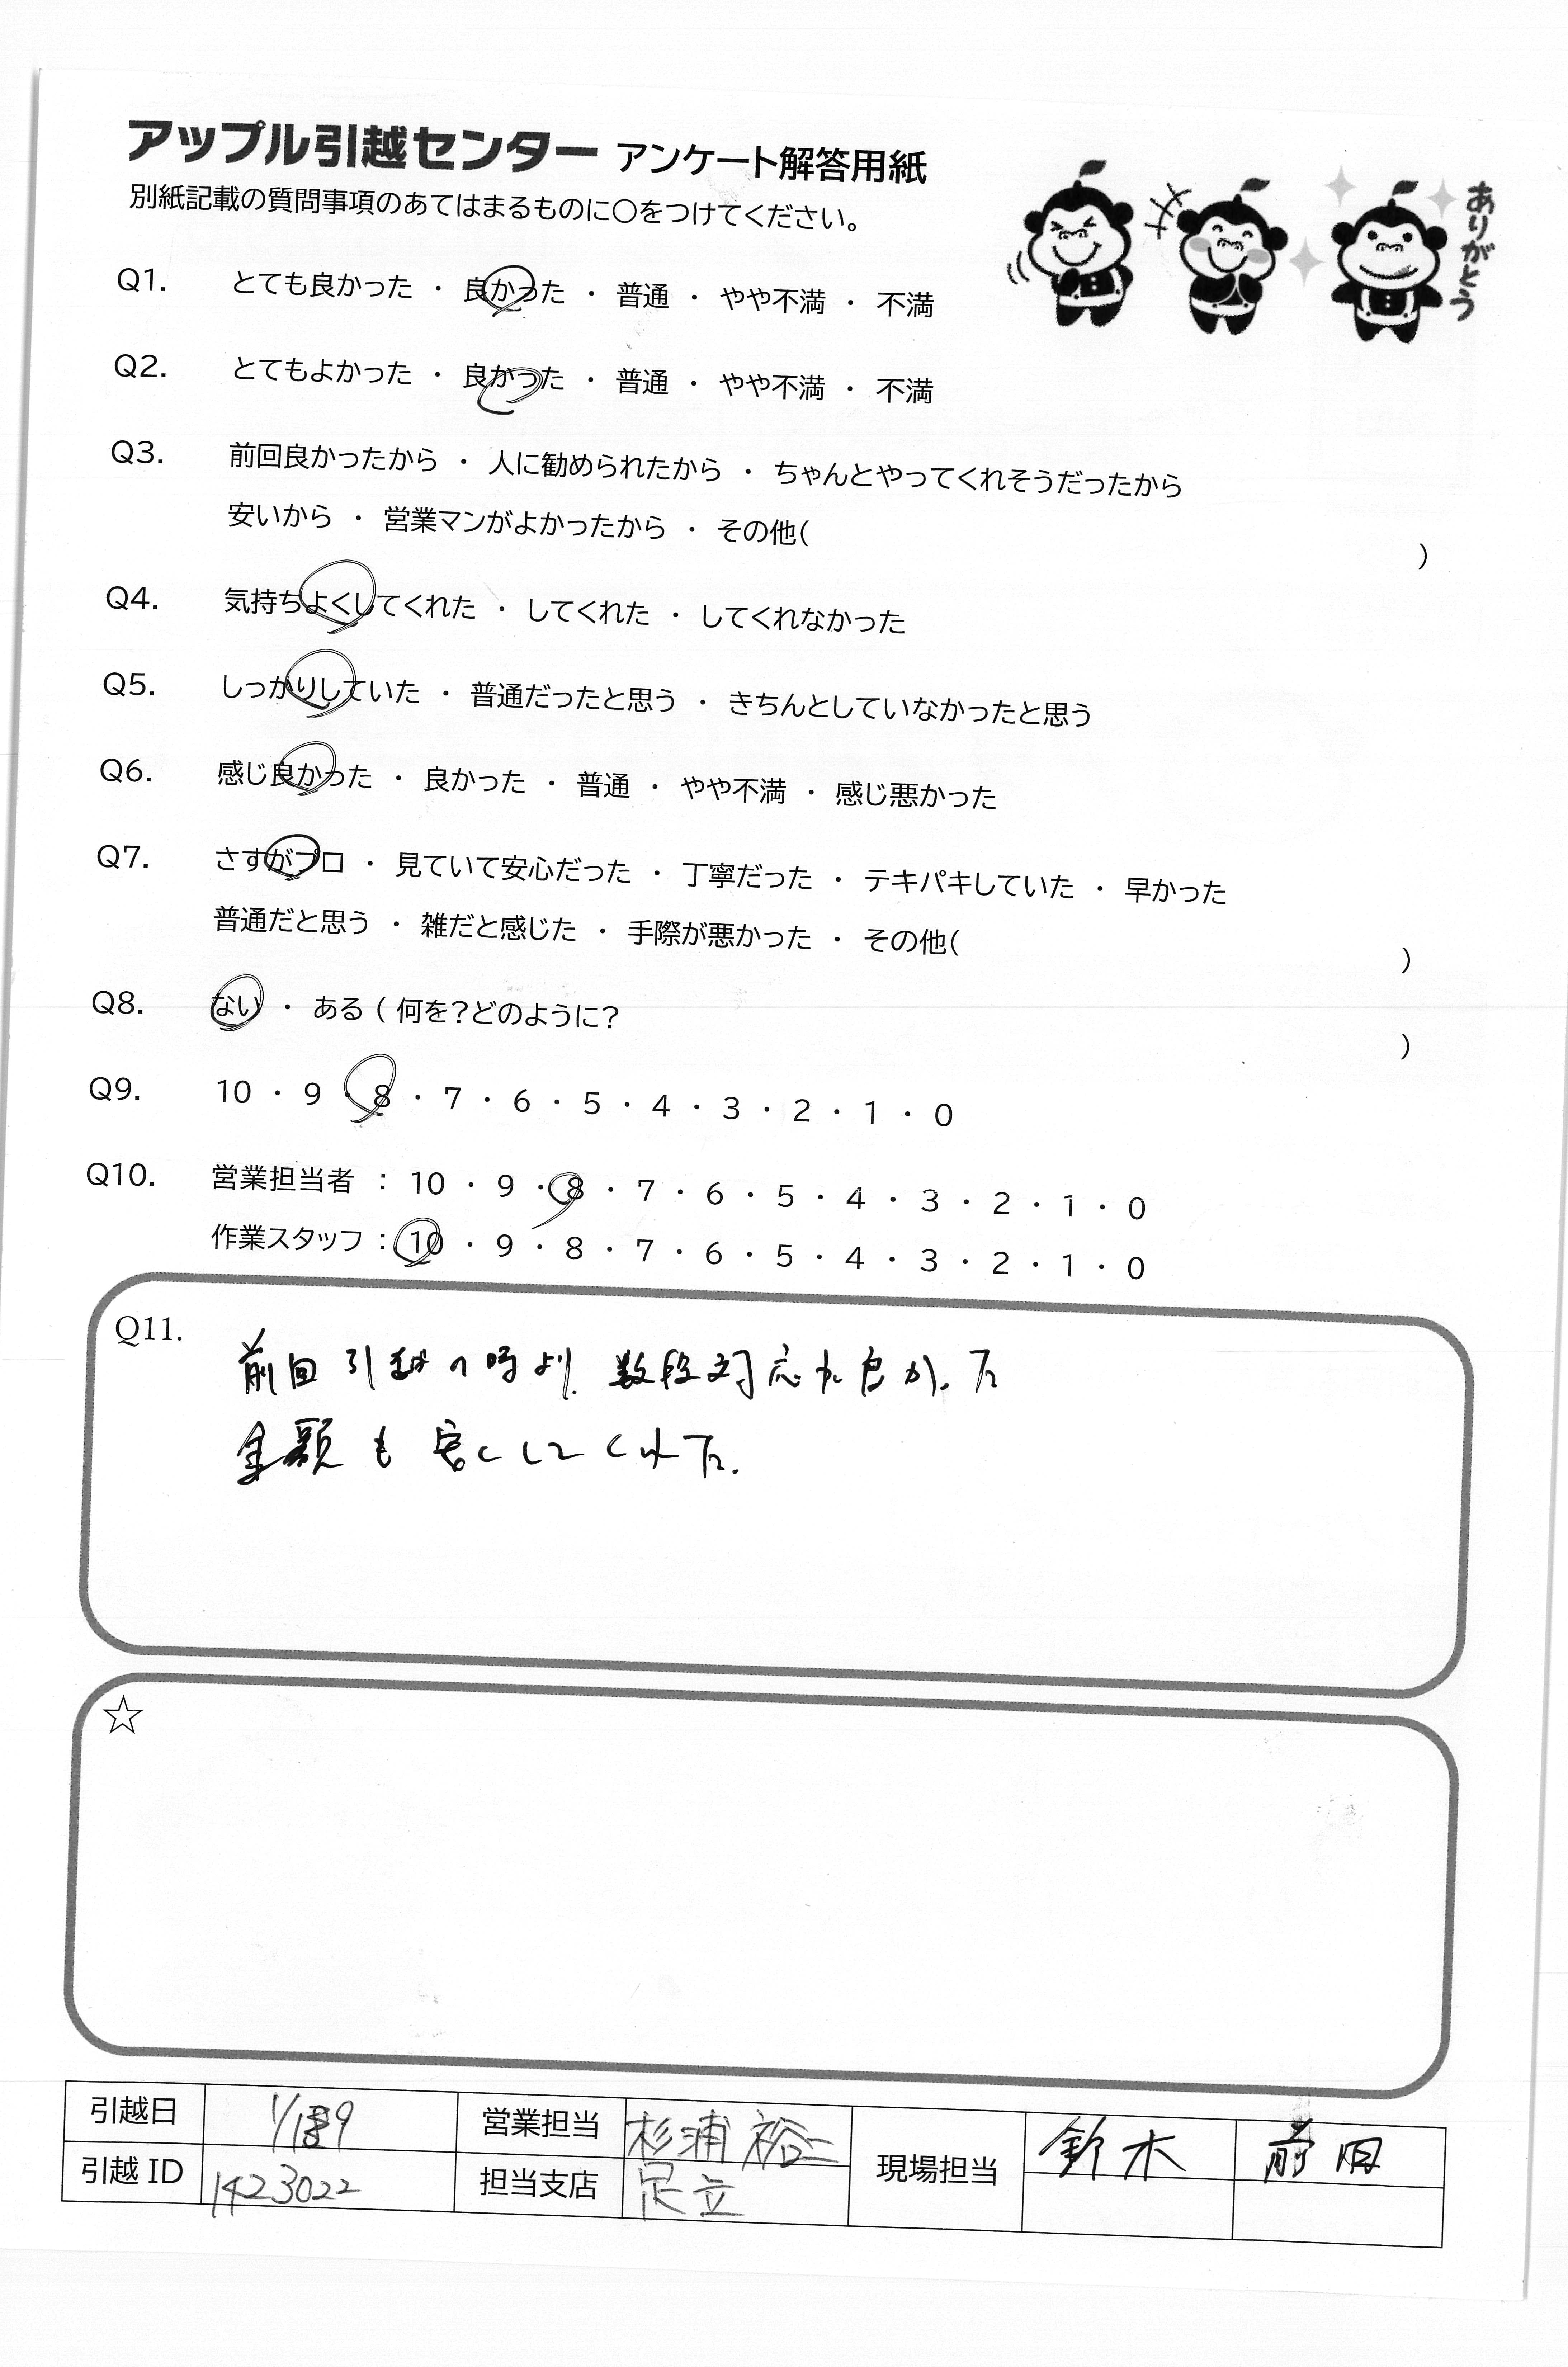 アップル引越センター アンケート解答用紙
別紙記載の質問事項のあてはまるものに○をつけてください。
ありがとう
Q1. とても良かった ・ 良かった ・ 普通 ・ やや不満 ・ 不満
Q2. とてもよかった ・ 良かった ・ 普通 ・ やや不満 ・ 不満
Q3. 前回良かったから ・ 人に勧められたから ・ ちゃんとやってくれそうだったから
安いから ・ 営業マンがよかったから ・ その他( )
Q4. 気持ちよくしてくれた ・ してくれた ・ してくれなかった
Q5. しっかりしていた ・ 普通だったと思う ・ きちんとしていなかったと思う
Q6. 感じ良かった ・ 良かった ・ 普通 ・ やや不満 ・ 感じ悪かった
Q7. さすがプロ ・ 見ていて安心だった ・ 丁寧だった ・ テキパキしていた ・ 早かった
普通だと思う ・ 雑だと感じた ・ 手際が悪かった ・ その他( )
Q8. ない ・ ある ( 何を?どのように? )
Q9. 10 ・ 9 ・ 8 ・ 7 ・ 6 ・ 5 ・ 4 ・ 3 ・ 2 ・ 1 ・ 0
Q10. 営業担当者 : 10 ・ 9 ・ 8 ・ 7 ・ 6 ・ 5 ・ 4 ・ 3 ・ 2 ・ 1 ・ 0
作業スタッフ : 10 ・ 9 ・ 8 ・ 7 ・ 6 ・ 5 ・ 4 ・ 3 ・ 2 ・ 1 ・ 0
Q11. 前回引越の時より、数段対応が良かった
金額も安くしてくれた.
☆
引越日 営業担当 杉浦 裕二 現場担当 鈴木 前田
引越 ID 1423022 担当支店 足立